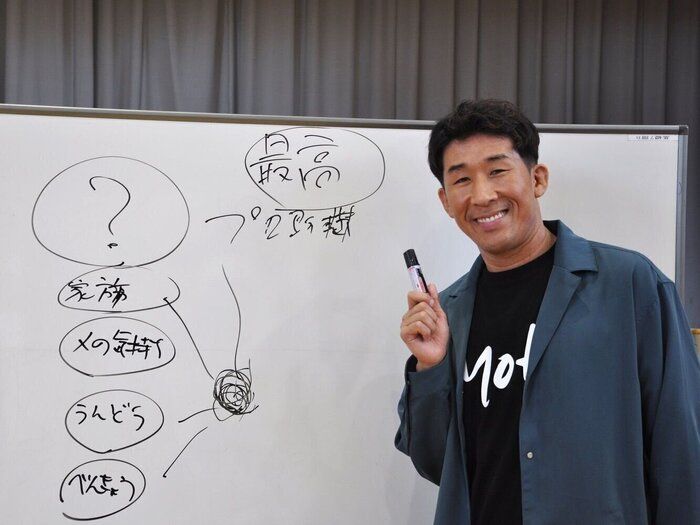 最高
?
家族
の気持ち
うんどう
べんきょう
Mot